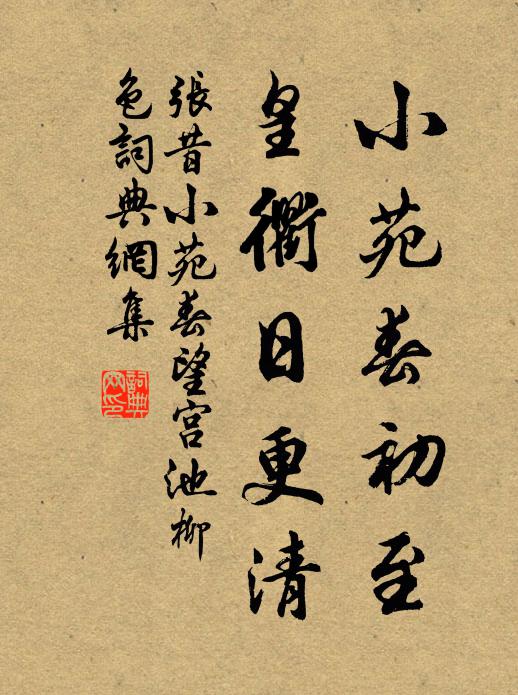 小苑春初至
皇衢日更清
張昔小苑春望宮池柳
色詞典網集
詞典